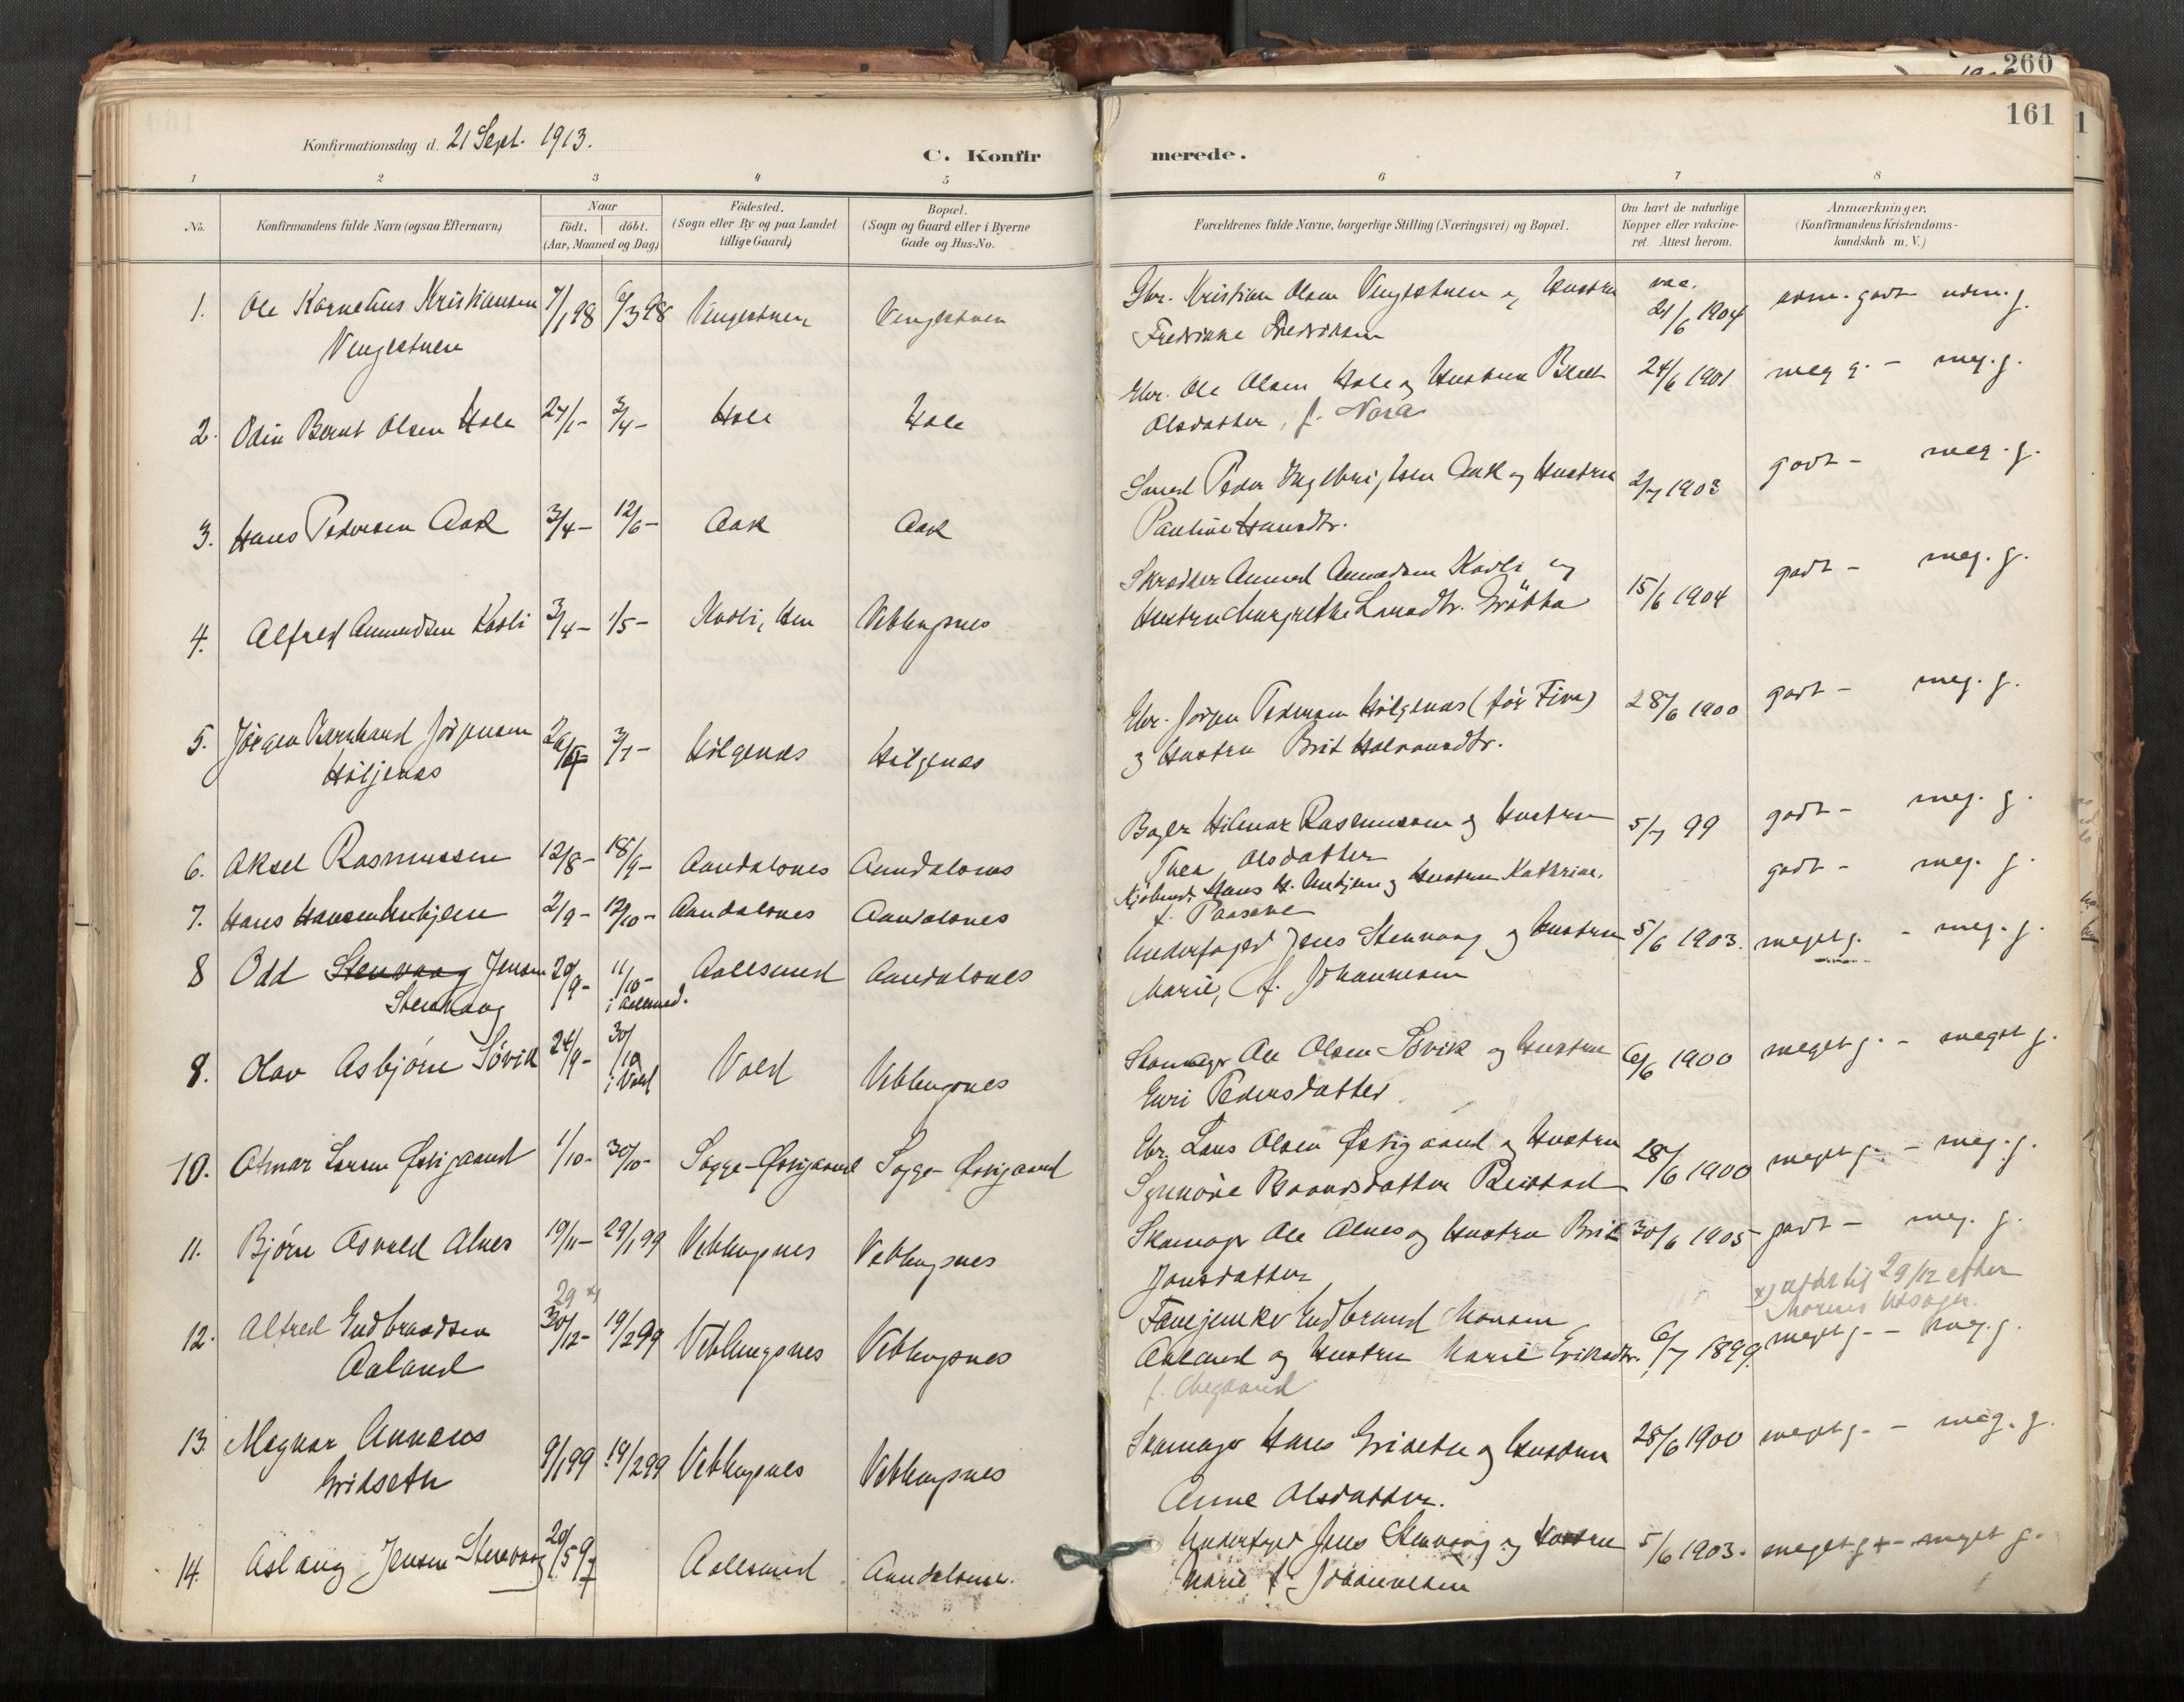 260
161
Konfirmationsdag d. 21 Sept. 1913.
C. Konfirmerede.
1 2 3 4 5 6 7 8
No. Konfirmandens fulde Navn (ogsaa Efternavn) Naar født. døbt. (Aar, Maaned og Dag) Fødested. (Sogn eller By og paa Landet tillige Gaard) Bopæl. (Sogn og Gaard eller i Byerne Gade og Hus-No. Forældrenes fulde Navne, borgerlige Stilling (Næringsvei) og Bopæl. Om havt de naturlige Kopper eller vakcineret. Attest herom. Anmærkninger. (Konfirmandens Kristendomskundskab m. V.)
1. Ole Kornelius Kristiansen 7/1 98 6/3 98 Vengestuen Vengestuen Gbr. Kristian Olsen Vengestuen og Hustru vac. 21/6 1904
Vengestuen Fredrikke Fredriksen
2. Odin Bernt Olsen Hole 27/1 - 3/4 - Hole Hole Gbr. Ole Olsen Hole og Hustru 24/6 1901 meg g. - meg. g.
Olsdatter, f. Nora
3. Hans Pedersen Aak 3/4 - 12/6 - Aak Aak Smed Peder Ingebrigtsen Aak og Hustru 2/7 1903 godt - meg. g.
Pauline Hansdtr.
4. Alfred Amundsen Kavli 3/4 - 1/5 - Kavli, Hen Veblungsnes Skrædder Amund Amundsen Kavli og 15/6 1904 godt - meg. g.
Hustru Margrethe Larsdtr. Grøtta
5. Jørgen Bernhard Jørgensen 3/7 - Hølgenæs Hølgenæs Gbr. Jørgen Pedersen Hølgenæs (før Fiva) 28/6 1900 godt - meg. g.
Høljenæs og Hustru Brit Halvorsdtr.
6. Aksel Rasmussen 12/8 - 18/9 - Aandalsnes Aandalsnes Bager Hilmar Rasmussen og Hustru 5/7 99 godt - meg. g.
Thea Olsdatter
7. Hans Hansen 2/9 - 12/10 - Aandalsnes Aandalsnes Kjøbmd. Hans H. og Hustru Kathrine, godt - meg. g.
f. Paasche
8 Odd Stenvaag Jensen 20/9 - 11/10 - i Aalesund. Aalesund Aandalsnes Underfoged Jens Stenvaag og Hustru 5/6 1903. meget g. - meg. g.
Stenvaag Marie, f. Johannesen
9. Olav Asbjørn Søvik 24/9 - 30/10 i Vold Vold Veblungsnes Skomager Ole Olsen Søvik og Hustru 6/6 1900 meget g. - meget g.
Guri Pedersdatter
10. Otmar Larsen Østigaard 1/10 - 30/10 - Sogge-Østigaard Sogge-Østigaard Gbr. Lars Olsen Østigaard og Hustru 28/6 1900 meget g. - meg. g.
Synnøve
11. Bjørn Asvald Alnes 19/11 - 29/1 99 Veblungsnes Veblungsnes Skomager Ole Alnes og Hustru Brit 30/6 1905 godt - meg. g.
Jonsdatter
29 x) x) 29/12 efter
Morens Udsagn.
12. Alfred Gudbrandsen 30/12 - 19/2 99 Veblungsnes Veblungsnes Fanejunker Gudbrand Monsen
Aaland Aaland og Hustru Marie Eriksdtr. 6/7 1899. meget g. - meg. g.
13. Magnar Annæus
Gridseth 9/1 99 19/2 99 Veblungsnes Veblungsnes Skomager Hans Gridseth og Hustru 28/6 1900 meget g. - meg. g.
Anne Olsdatter.
14. Aslaug Jensen Stenvaag 20/5 97 Aalesund Aandalsnes. Underfoged Jens Stenvaag og Hustru 5/6 1903. meget g + - meget g.
Marie f. Johannesen